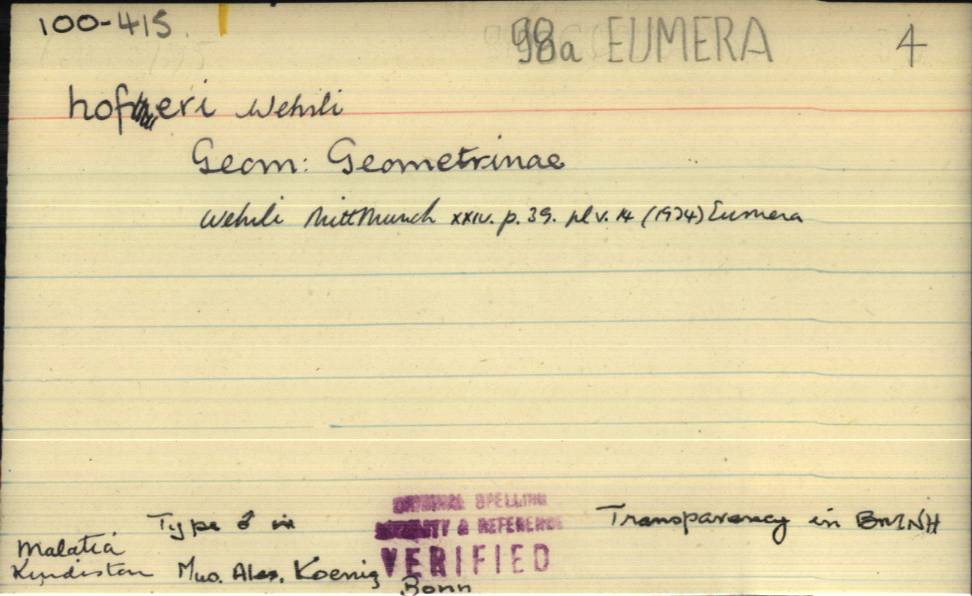 100-415.
98a EUMERA 4
hoferi Wehrli
Geom: Geometrinae
Wehrli Mitt Munch xxiv. p. 39. pl v. 14 (1934) Eumera
ORIGINAL SPELLING
& REFERENCE
VERIFIED
Type ♂ in
Transparency in BMNH
Malatia
Kurdistan Mus. Alex. Koenig
Bonn